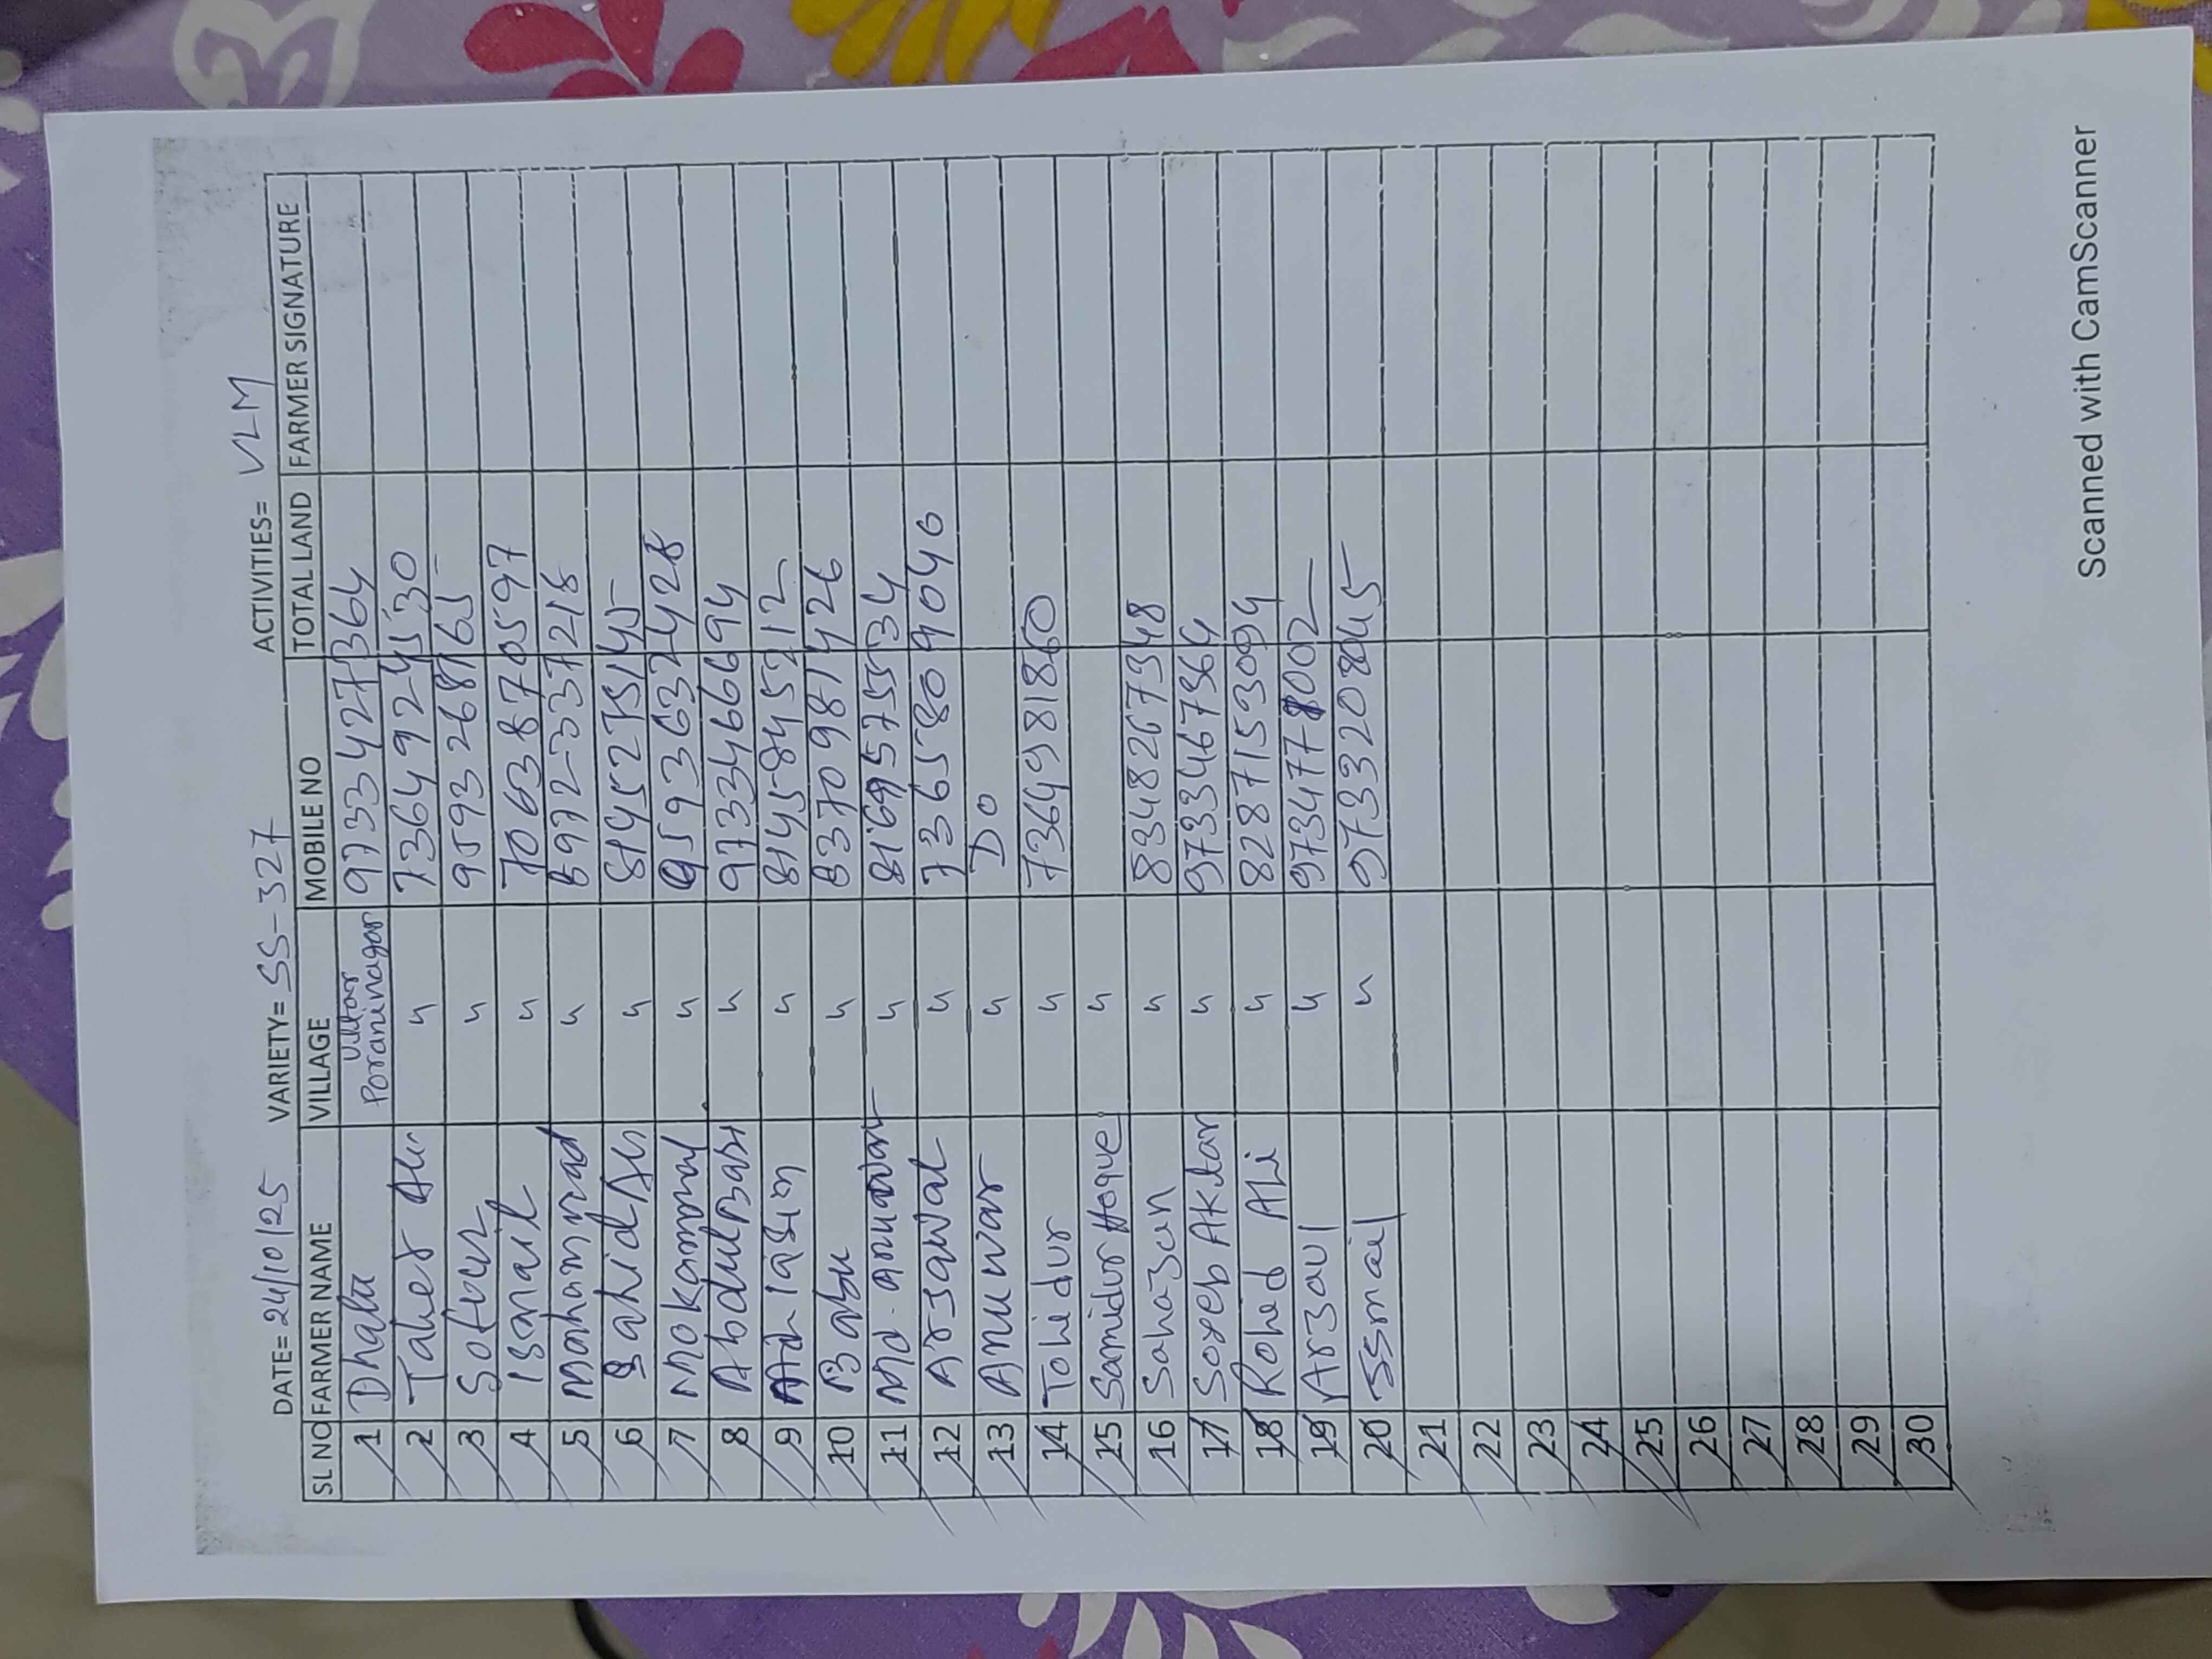 DATE= 24/10/25 VARIETY= SS-327 ACTIVITIES= VLM
SL NO FARMER NAME VILLAGE MOBILE NO TOTAL LAND FARMER SIGNATURE
1 Dhalu Uttar Poraninagar 9733427364
2 Taher Ali " 7364924530
3 Sofour " 9593268165
4 Ismail " 7063870597
5 Mahammad " 8972337218
6 Sahid Ali " 8145275145
7 Mokammal " 9593632428
8 Abdul Bari " 9733466694
9 Iasin " 8145845212
10 Babu " 8370981426
11 Md. anuwar " 8169575534
12 Arsawal " 7365809040
13 Anuwar " Do
14 Tohidur " 7364981860
15 Samidur Hoque "
16 Sahazan " 8348267348
17 Soyeb Aktar " 9733467364
18 Rohid Ali " 8287153094
19 Arzaul " 9734778002
20 Ismail " 9733208045
21
22
23
24
25
26
27
28
29
30
Scanned with CamScanner